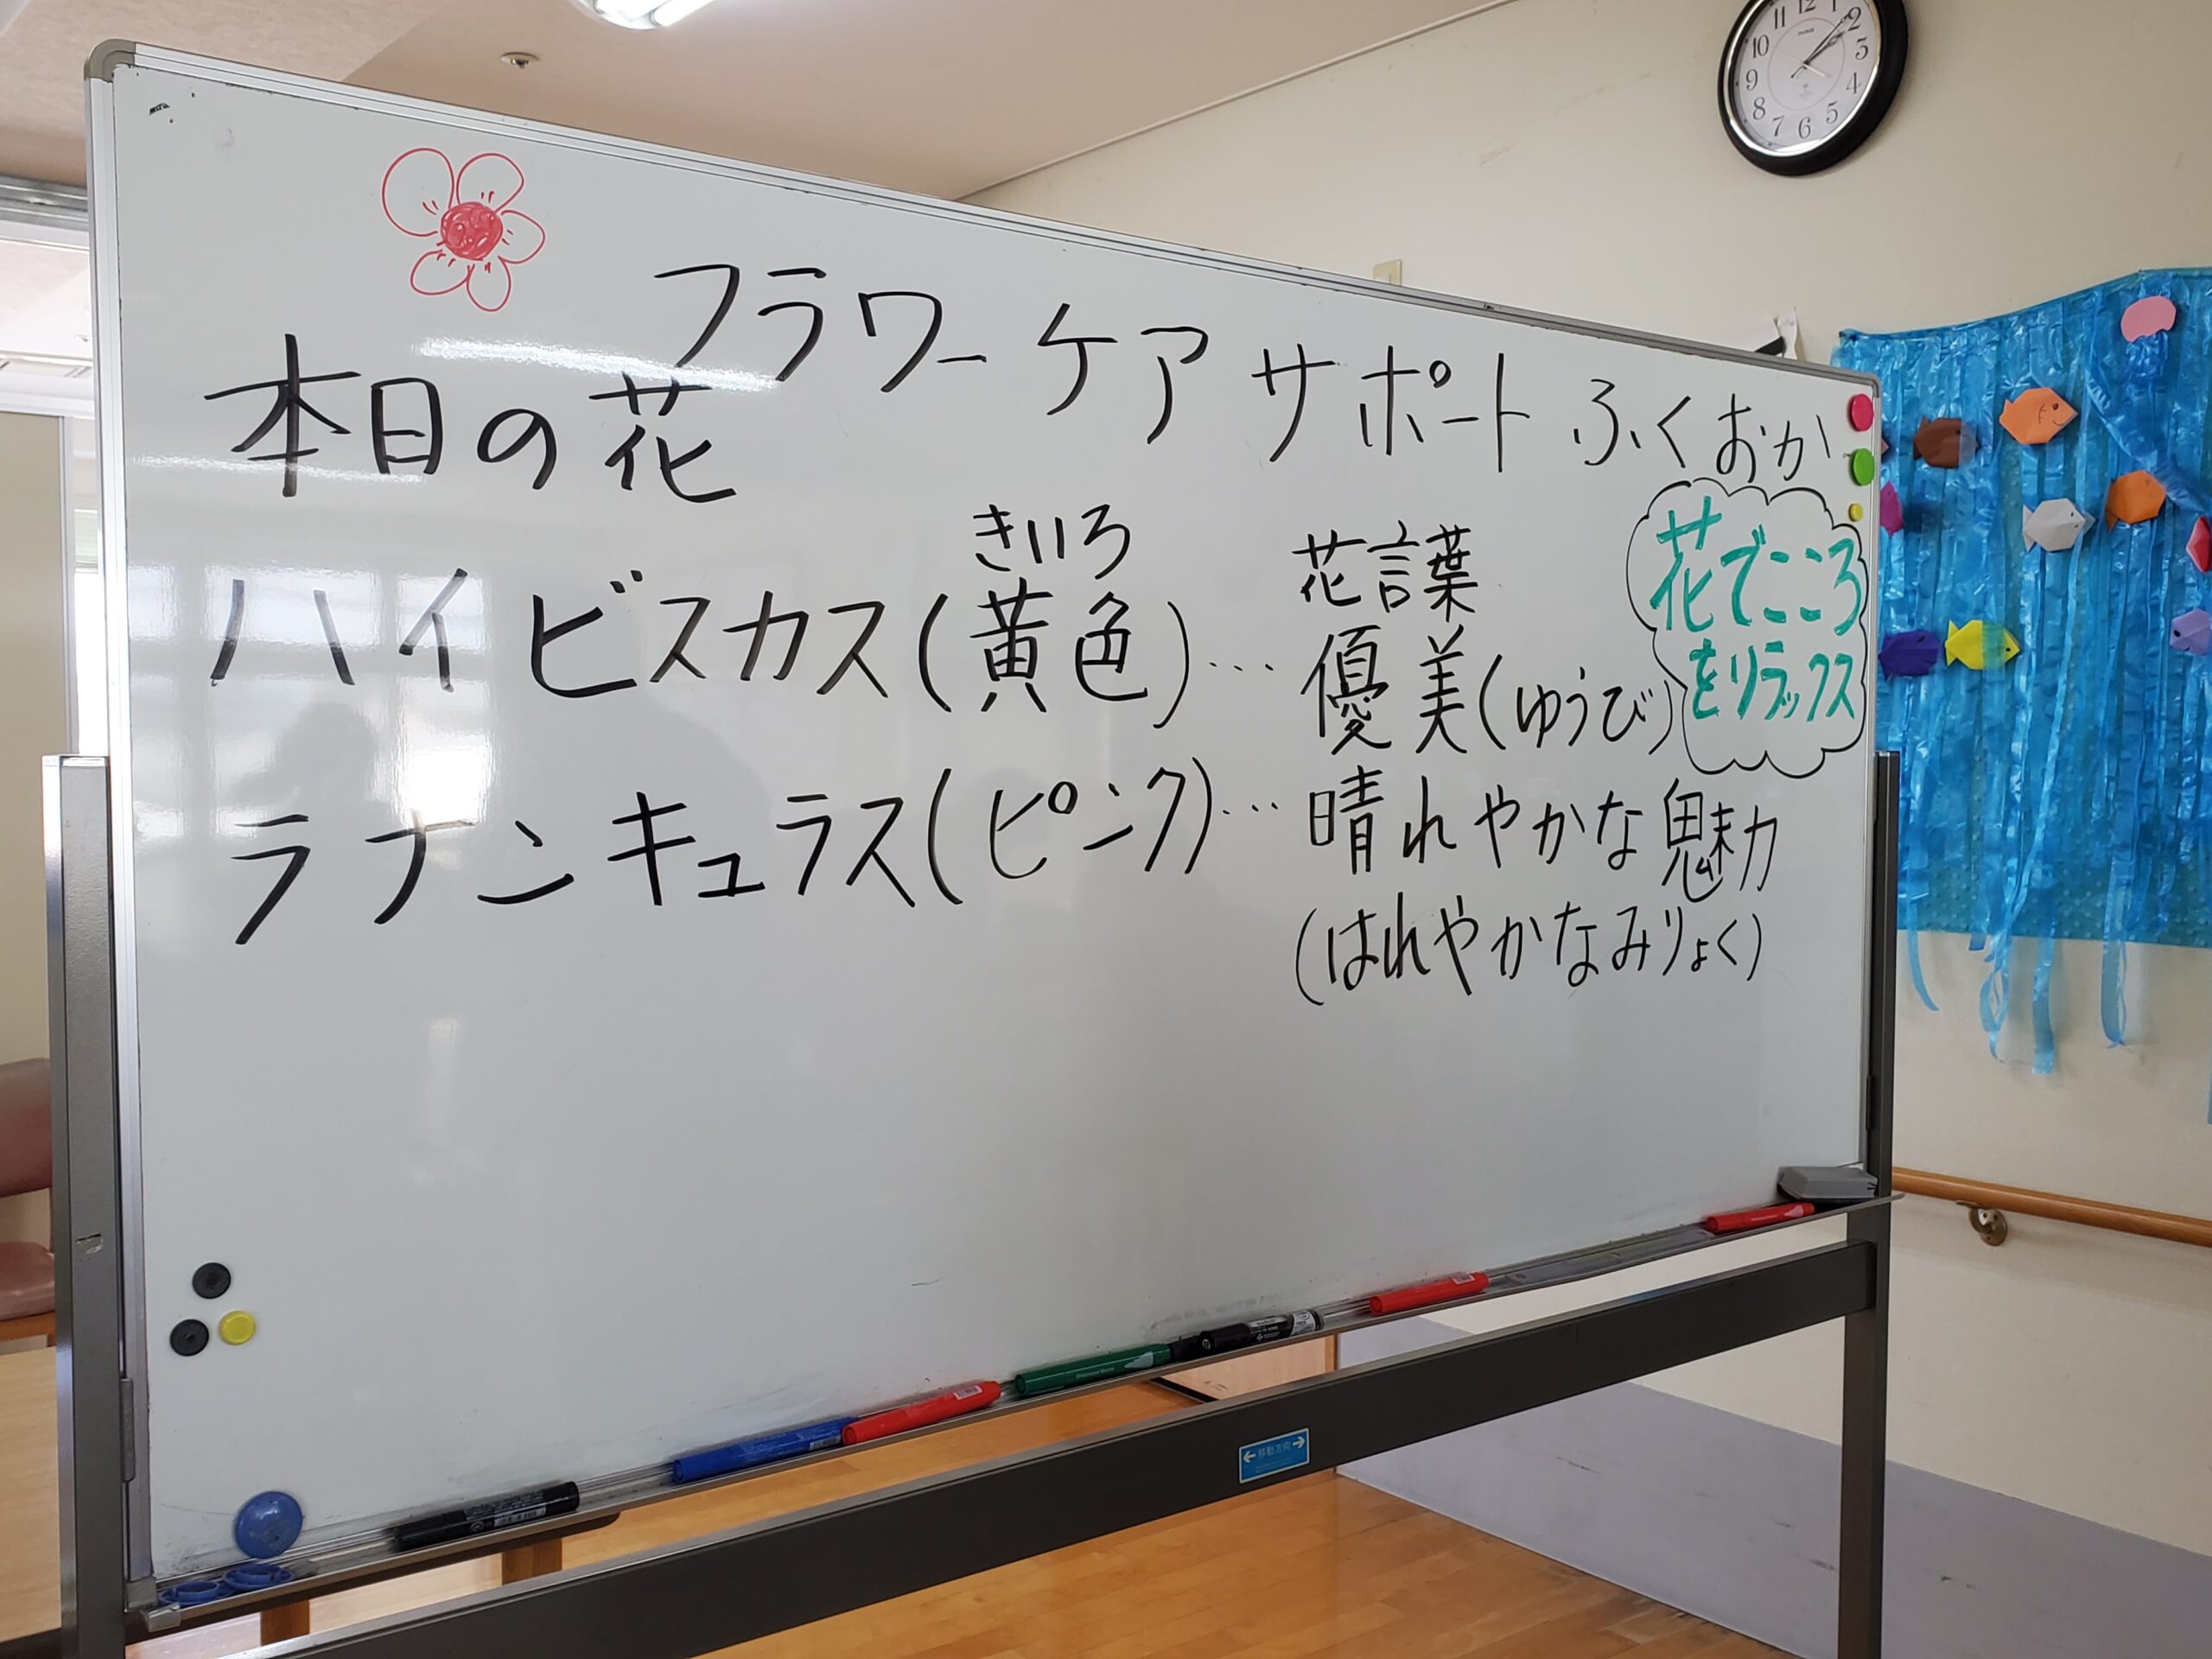 フラワーケアサポートふくおか
本日の花
きいろ
ハイビスカス(黄色)…
花言葉
優美(ゆうび)
花でこころ
をリラックス
ラナンキュラス(ピンク)…晴れやかな魅力
(はれやかなみりょく)
11 12 1
10 2
9 3
8 4
7 6 5
←移動方向→